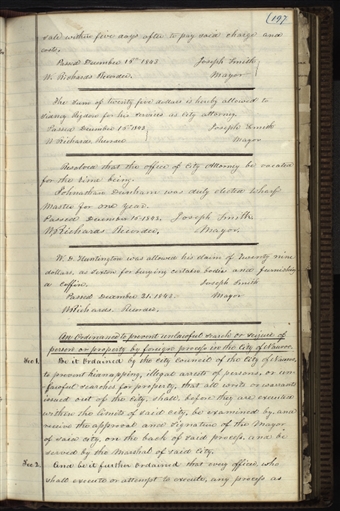 (197
sale within five days after to pay said charge and
costs.
Passed December 15th 1843. Joseph Smith
W. Richards Recorder. Mayor
The sum of twenty five dollars is hereby allowed to
Sidney Rigdon for his services as City attorney.
Passed December 15th 1843. Joseph Smith
W. Richards Recorder Mayor
Resolved that the office of City Attorney be vacated
for the time being.
Johnathan Dunham was duly elected Wharf
Master for one year.
Passed December 16 1843. Joseph Smith.
W Richards Recorder, Mayor.
W. D. Huntington was allowed his claim of Twenty nine
dollars, as Sexton for burying certain bodies and furnishing
a coffin. Joseph Smith
Passed December 21. 1843. Mayor
W Richards. Recorder.
An Ordinance to prevent unlawful search or seizure of
person or property by foreign process in the city of Nauvoo.
Sec 1. Be it Ordained by the City Council of the City of Nauvoo,
to prevent kidnapping, illegal arrests of persons, or un-
lawful searches for property, that all writs or warrants
issued out of the city, shall, before they are executed
within the limits of said city, be examined by, and
receive the approval and signature of the Mayor
of said city, on the back of said process, and be
served by the Marshal of said city.
Sec 2. And be it further Ordained that every officer who
shall execute or attempt to execute, any process as